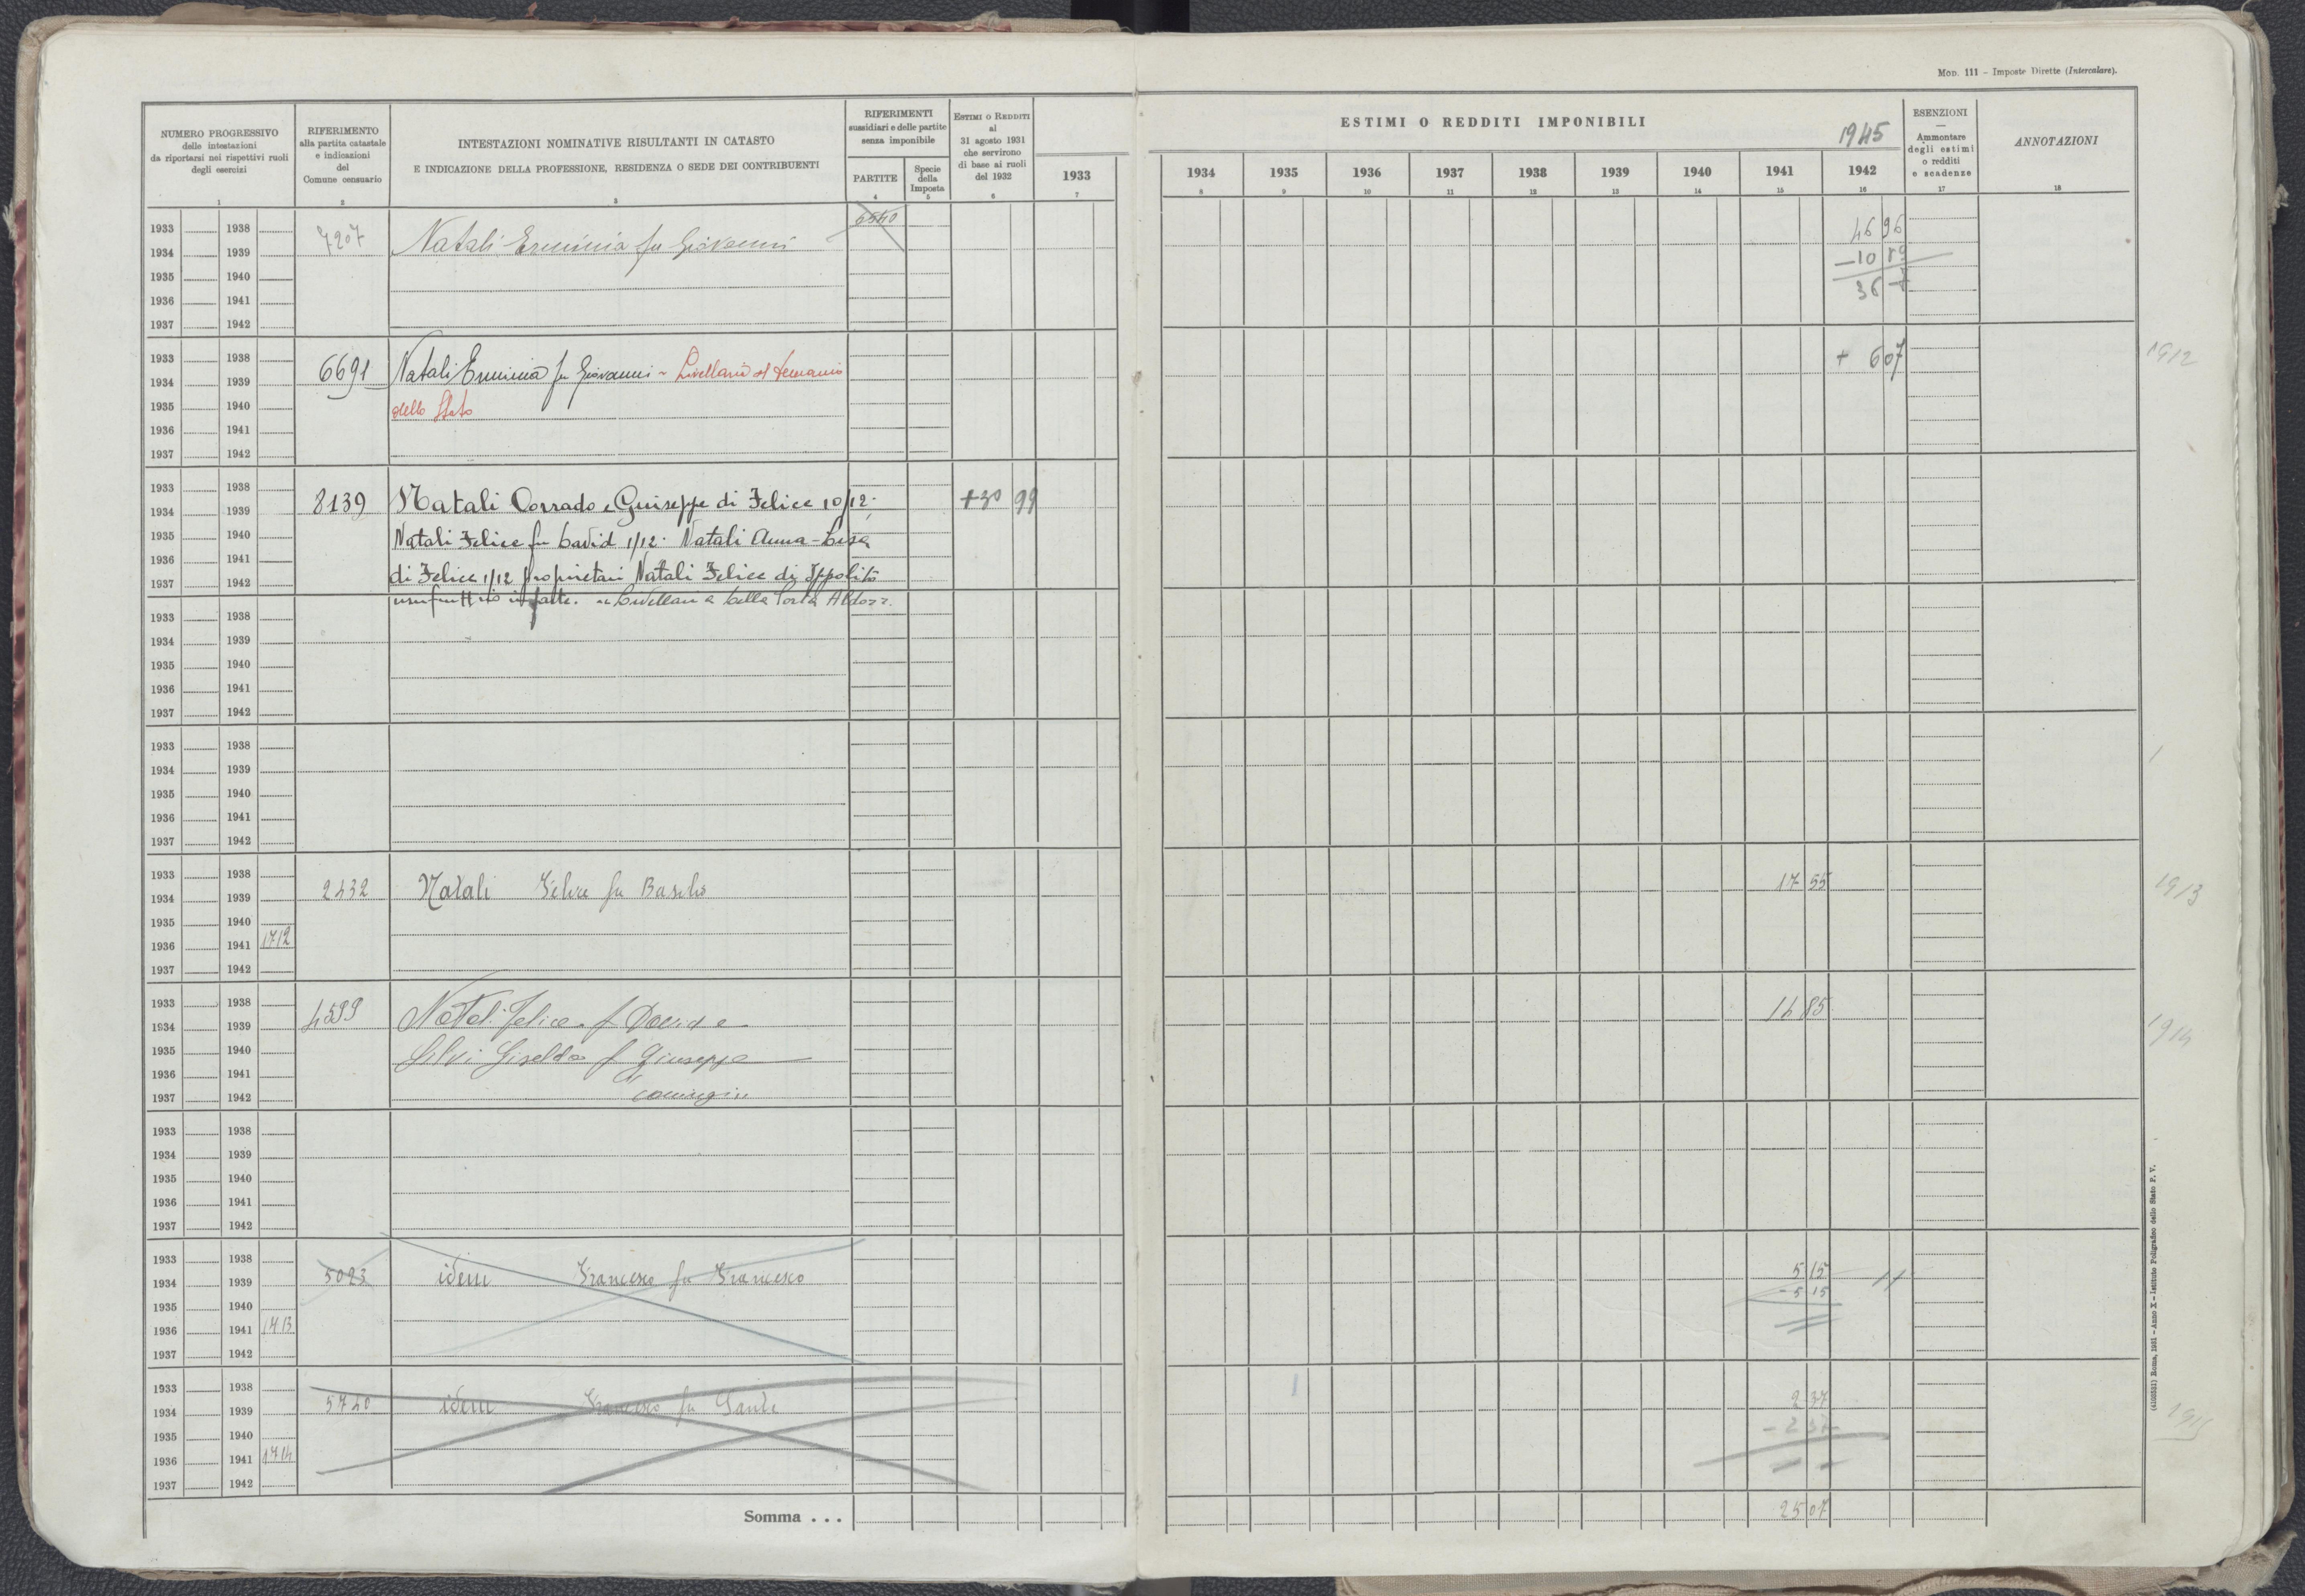 Mod. 111 – Imposte Dirette (Intercalare).
NUMERO PROGRESSIVO
delle intestazioni
da riportarsi nei rispettivi ruoli
degli esercizi
1
RIFERIMENTO
alla partita catastale
e indicazioni
del
Comune censuario
2
INTESTAZIONI NOMINATIVE RISULTANTI IN CATASTO
E INDICAZIONE DELLA PROFESSIONE, RESIDENZA O SEDE DEI CONTRIBUENTI
3
RIFERIMENTI
sussidiari e delle partite
senza imponibile
PARTITE
4
Specie
della
Imposta
5
ESTIMI O REDDITI
al
31 agosto 1931
che servirono
di base ai ruoli
del 1932
6
1933
7
ESTIMI O REDDITI IMPONIBILI
1945
1934 1935 1936 1937 1938 1939 1940 1941 1942
8 9 10 11 12 13 14 15 16
ESENZIONI
—
Ammontare
degli estimi
o redditi
e scadenze
17
ANNOTAZIONI
18
1933 1938 46 96
1934 1939 7207 Natali Erminia fu Giovanni – 10 89
1935 1940 36
1936 1941
1937 1942
1933 1938 + 6 07 1912
1934 1939 6691 Natali Erminia fu Giovanni – Livellaria al demanio
1935 1940 dello Stato
1936 1941
1937 1942
1933 1938
1934 1939 8139 Natali Corrado e Giuseppe di Felice 10/12. +30 99
1935 1940 Natali Felice fu David 1/12. Natali Anna-Lisa
1936 1941
1937 1942 di Felice 1/12 proprietari Natali Felice di Ippolito
usufruttuario in parte.
1933 1938
1934 1939
1935 1940
1936 1941
1937 1942
1933 1938
1934 1939
1935 1940
1936 1941
1937 1942
1933 1938
1934 1939 2432 Natali Felice fu Basilio 17 55 1913
1935 1940
1936 1941 1712
1937 1942
1933 1938
1934 1939 4599 Natali Felice f David e 14 85 1914
1935 1940 Silvi Giselda f Giuseppe
1936 1941
1937 1942 coniugi
1933 1938
1934 1939
1935 1940
1936 1941
1937 1942
1933 1938
1934 1939 5023 idem Francesco fu Francesco 5 15
1935 1940 – 5 15
1936 1941 1713
1937 1942
1933 1938
1934 1939 5740 idem Francesco fu Sante 2 37
1935 1940 – 2 37
1936 1941 1714
1937 1942
Somma . . . 25 07
(4100531) Roma, 1931 – Anno X – Istituto Poligrafico dello Stato P. V.